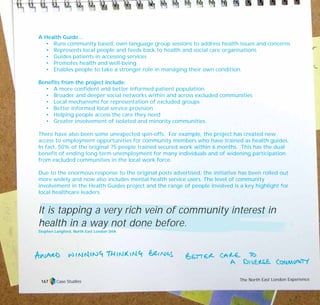 A Health Guide...
• Runs community based, own language group sessions to address health issues and concerns
• Represents local people and feeds back to health and social care organisations
• Guides patients in accessing services
• Promotes health and well-being
• Enables people to take a stronger role in managing their own condition.
Benefits from the project include:
• A more confident and better informed patient population
• Broader and deeper social networks within and across excluded communities
• Local mechanisms for representation of excluded groups
• Better informed local service provision
• Helping people access the care they need
• Greater involvement of isolated and minority communities.
There have also been some unexpected spin-offs. For example, the project has created new
access to employment opportunities for community members who have trained as health guides.
In fact, 50% of the original 75 people trained secured work within 6 months. This has the dual
benefit of ending long-term unemployment for many individuals and of widening participation
from excluded communities in the local work force.
Due to the enormous response to the original posts advertised, the initiative has been rolled out
more widely and now also includes mental health service users. The level of community
involvement in the Health Guides project and the range of people involved is a key highlight for
local healthcare leaders.
It is tapping a very rich vein of community interest in
health in a way not done before.
Stephen Langford, North East London SHA
AWARD WINNING THINKING BRINGS BETTER CARE TO
A DIVERSE COMMUNITY
167 Case Studies The North East London Experience